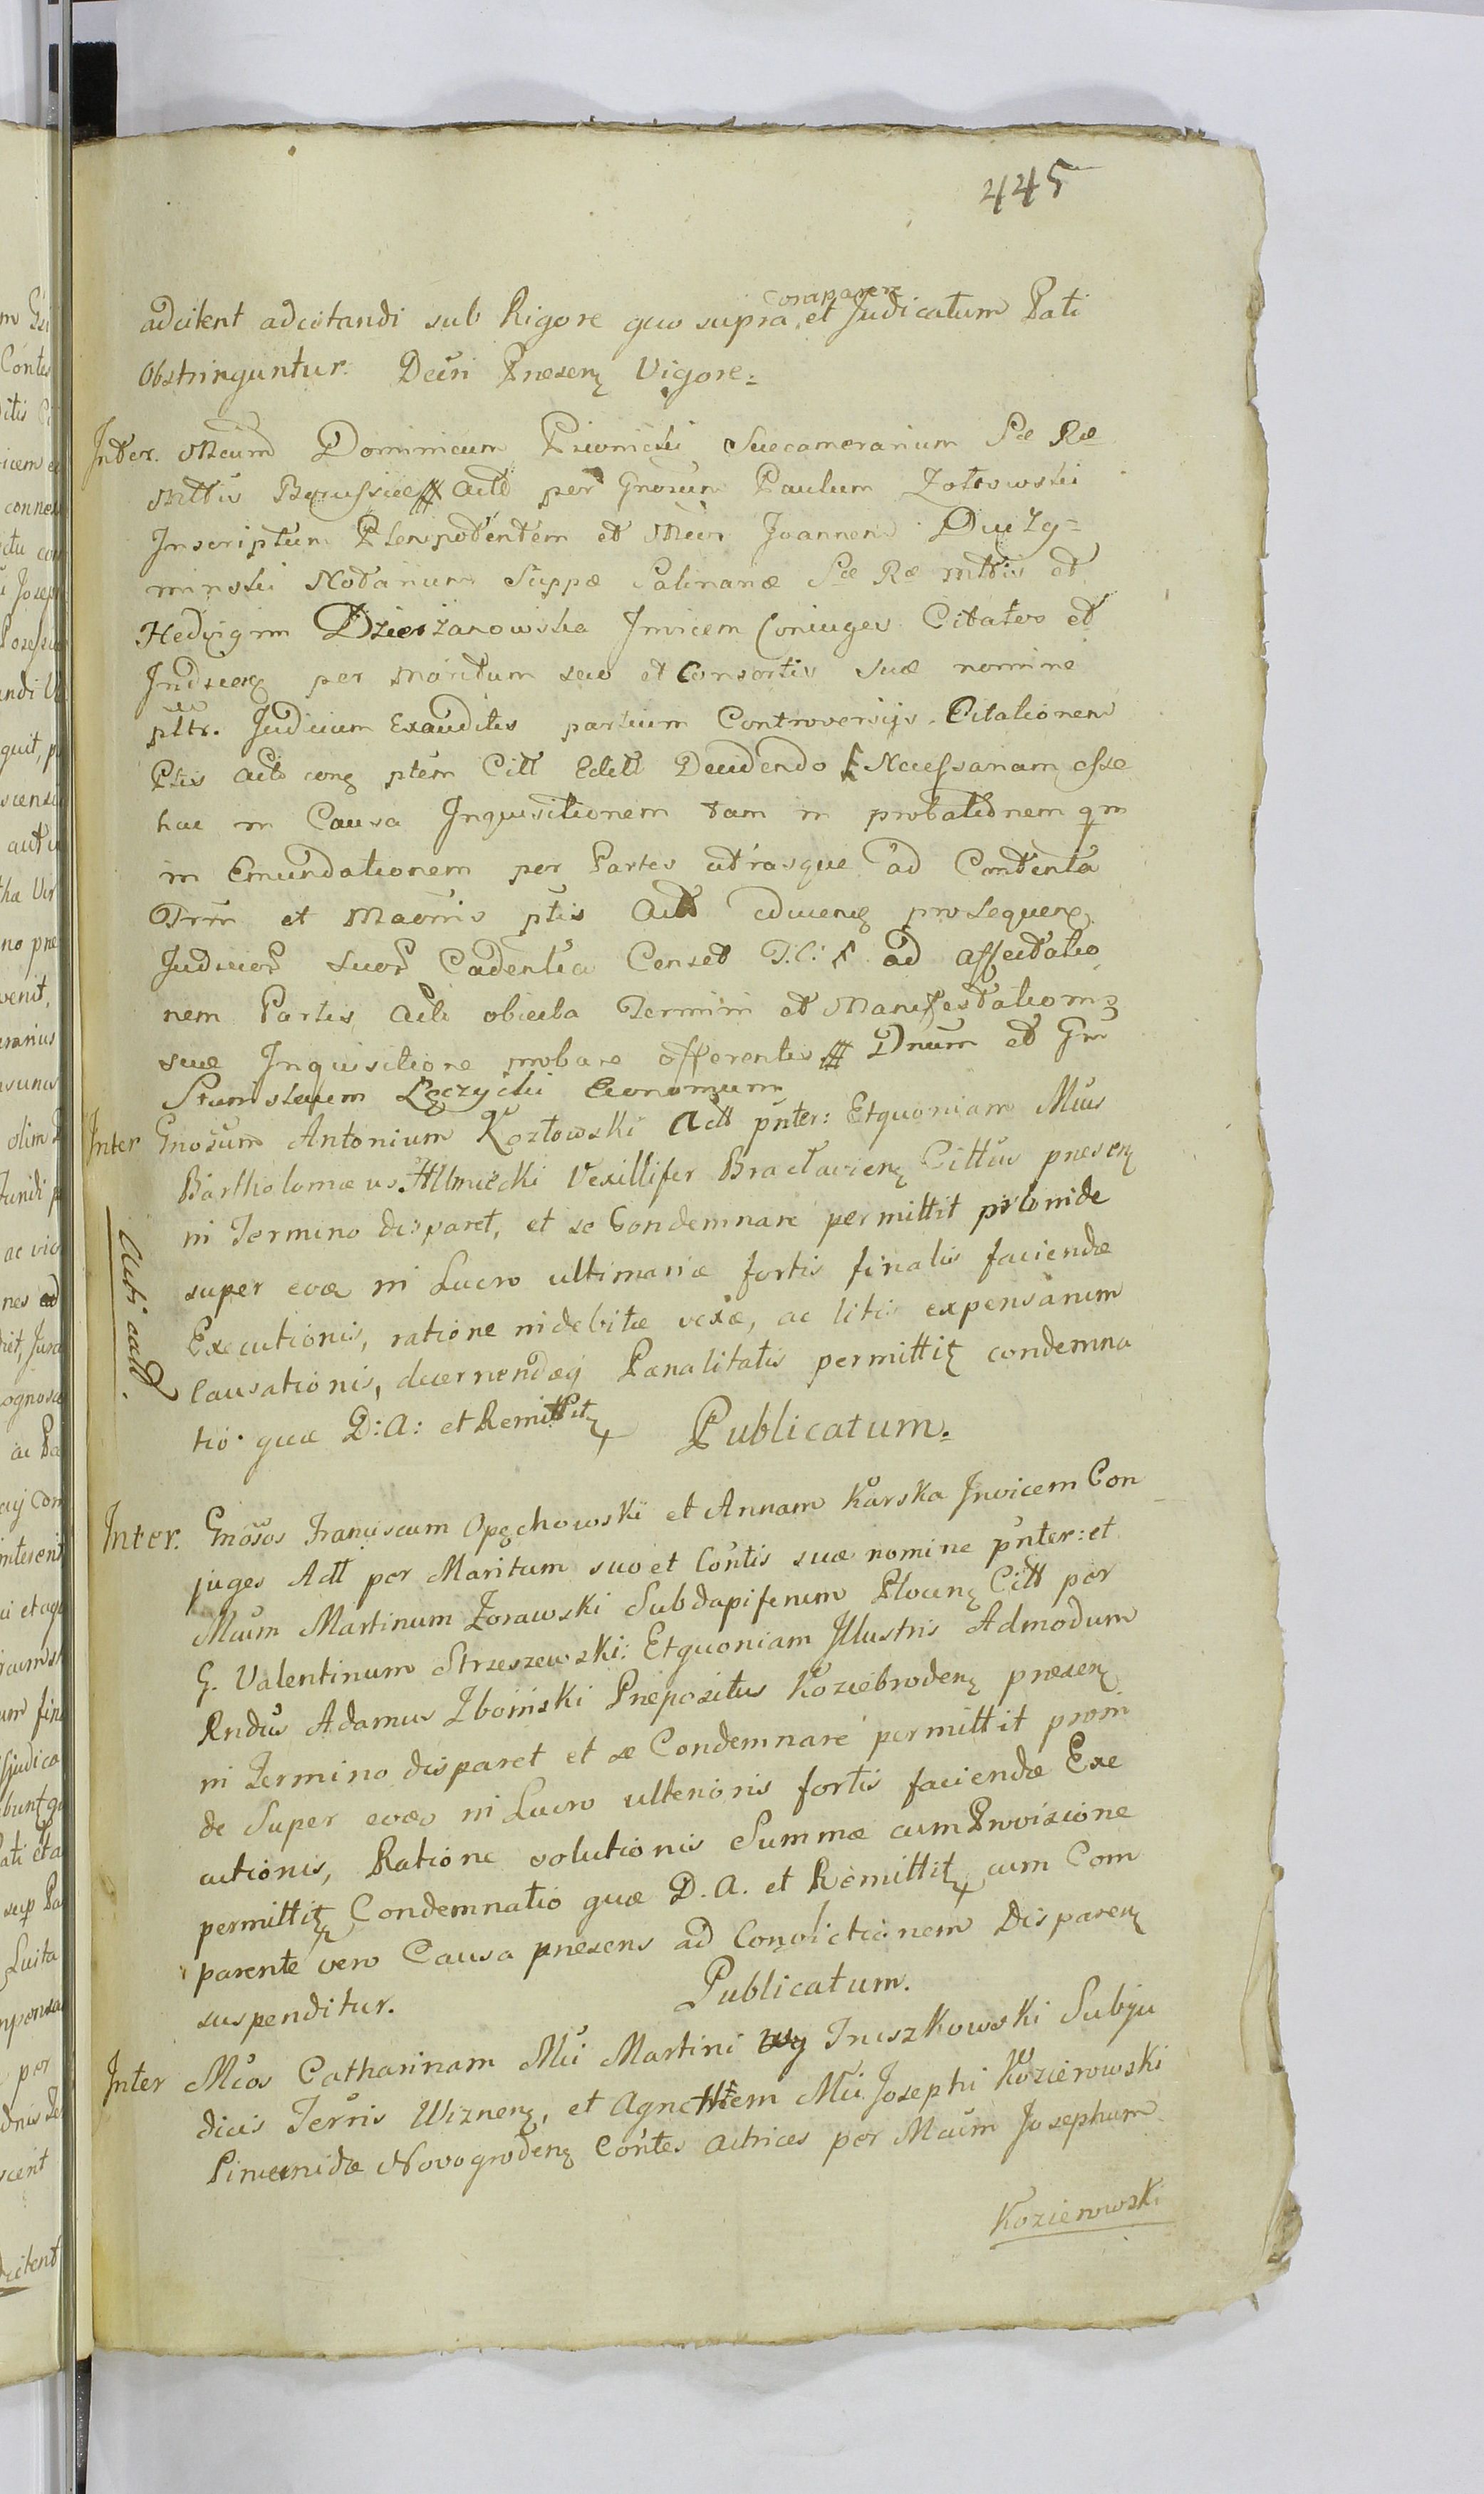 445
comparere
adcitent adcitandi sub Rigore quo supra, et Judicatum Pati
obstringuntur. Decri Præsenz Vigore.
Inter. Mcum Dominicum Succamerarium Sæ Ræ
Mttis Borussiæ ## Actt per Gnosum Paulum Zotowski
Inscriptum Plenipotentem et Mcum Joannem Duzy=
minski Notarium Suppæ Salinariæ Sæ Ræ Mttis et
Hedvigim Dzierzanowska Invicem Coniuges Citatos et
per Maritum suo et Consortis suæ nomine
pltr. Judicium Exauditis partium Controversijs. Citationem
Ptis Acto conz ptem Citt Editt Decidendo Necessariam esse
hac in Causa Inquisitionem tam in probationem qm
in Emundationem per Partes utrasque ad Contenta
Trm et Maonis ptis Actt prosequenz
Judicior suor Cadentia Censet ad affectatio
nem Partis Acti obiecta Termini et Manifestationis
suæ Inquisitione probare offerentis ## Dnum et Gm
Stanislaum Łączycki Œconomum
Inter Gnosum Antonium Kozłowski Actt pnter: Etquoniam Mcus
Bartholomæus Ilmicki Vexillifer Braclavienz Cittus præsenz
in Termino disparet, et se Condemnare permittit proinide
super eoæ in Lucro ultimariæ fortis finalis faciendæ
Executionis, ratione indebitæ vexæ, ac litis expensarum
causationis, decernendæq Pænalitatis permittitz condemna
tio quæ D: A: et Remittitz Publicatum.
Acti actt
Inter. Gnosos Franciscum Opęchowski et Annam Karska Invicem Con
juges Actt per Maritum suo et Contis suæ nomine pnter: et
Mcum Martinum Zorawski Subdapiferum Plocenz Citt per
G. Valentinum Strzeszewski: Etquoniam Illustris Admodum
Rndus Adamus Zboinski Præpositus Koziebrodenz præsenz
in Termino disparet et se Condemnare permittit proin
de Super eoæ in Lucro ulterioris fortis faciendæ Exe
cutionis, Ratione solutionis Summæ cum Provisione
permittitz Condemnatio quæ D. A. et Remittitz cum Com
parente vero Causa præsens ad Convictionem Disparenz
suspenditur. Publicatum.
Inter Mcas Catharinam Mci Martini Truszkowski Subju
dicis Terris Wiznenz, et Agnethem Mci Josephi Kozierowski
Pincernidæ Novogrodenz Contes Actrices per Mcum Josephum
Kozierowski